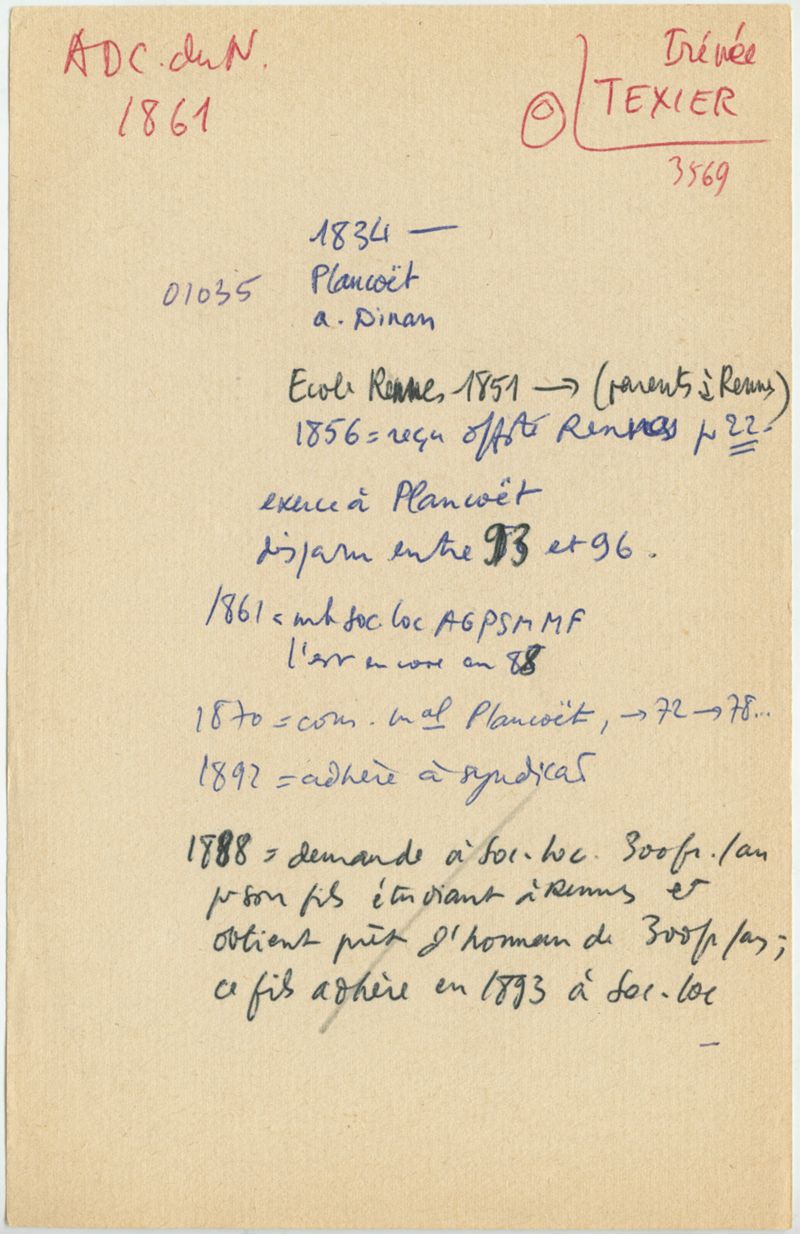 ADC. du N.
1861
Irénée
TEXIER
3569
1834 —
Plancoët
a. Dinan
01035
Ecole Rennes 1851 → (parents à Rennes)
1856 = reçu offté Rennes pr 22.
exerce à Plancoët
disparu entre 93 et 96.
1861 = mb soc. loc AGPSMMF
l'est encore en 88
1870 = cons. mal Plancoët, → 72 → 78...
1892 = adhère à syndicat
1888 = demande à Soc. loc. 300 fr. /an
pr son fils étudiant à Rennes et
obtient prêt d'honneur de 300 fr /an ;
ce fils adhère en 1893 à Soc. loc